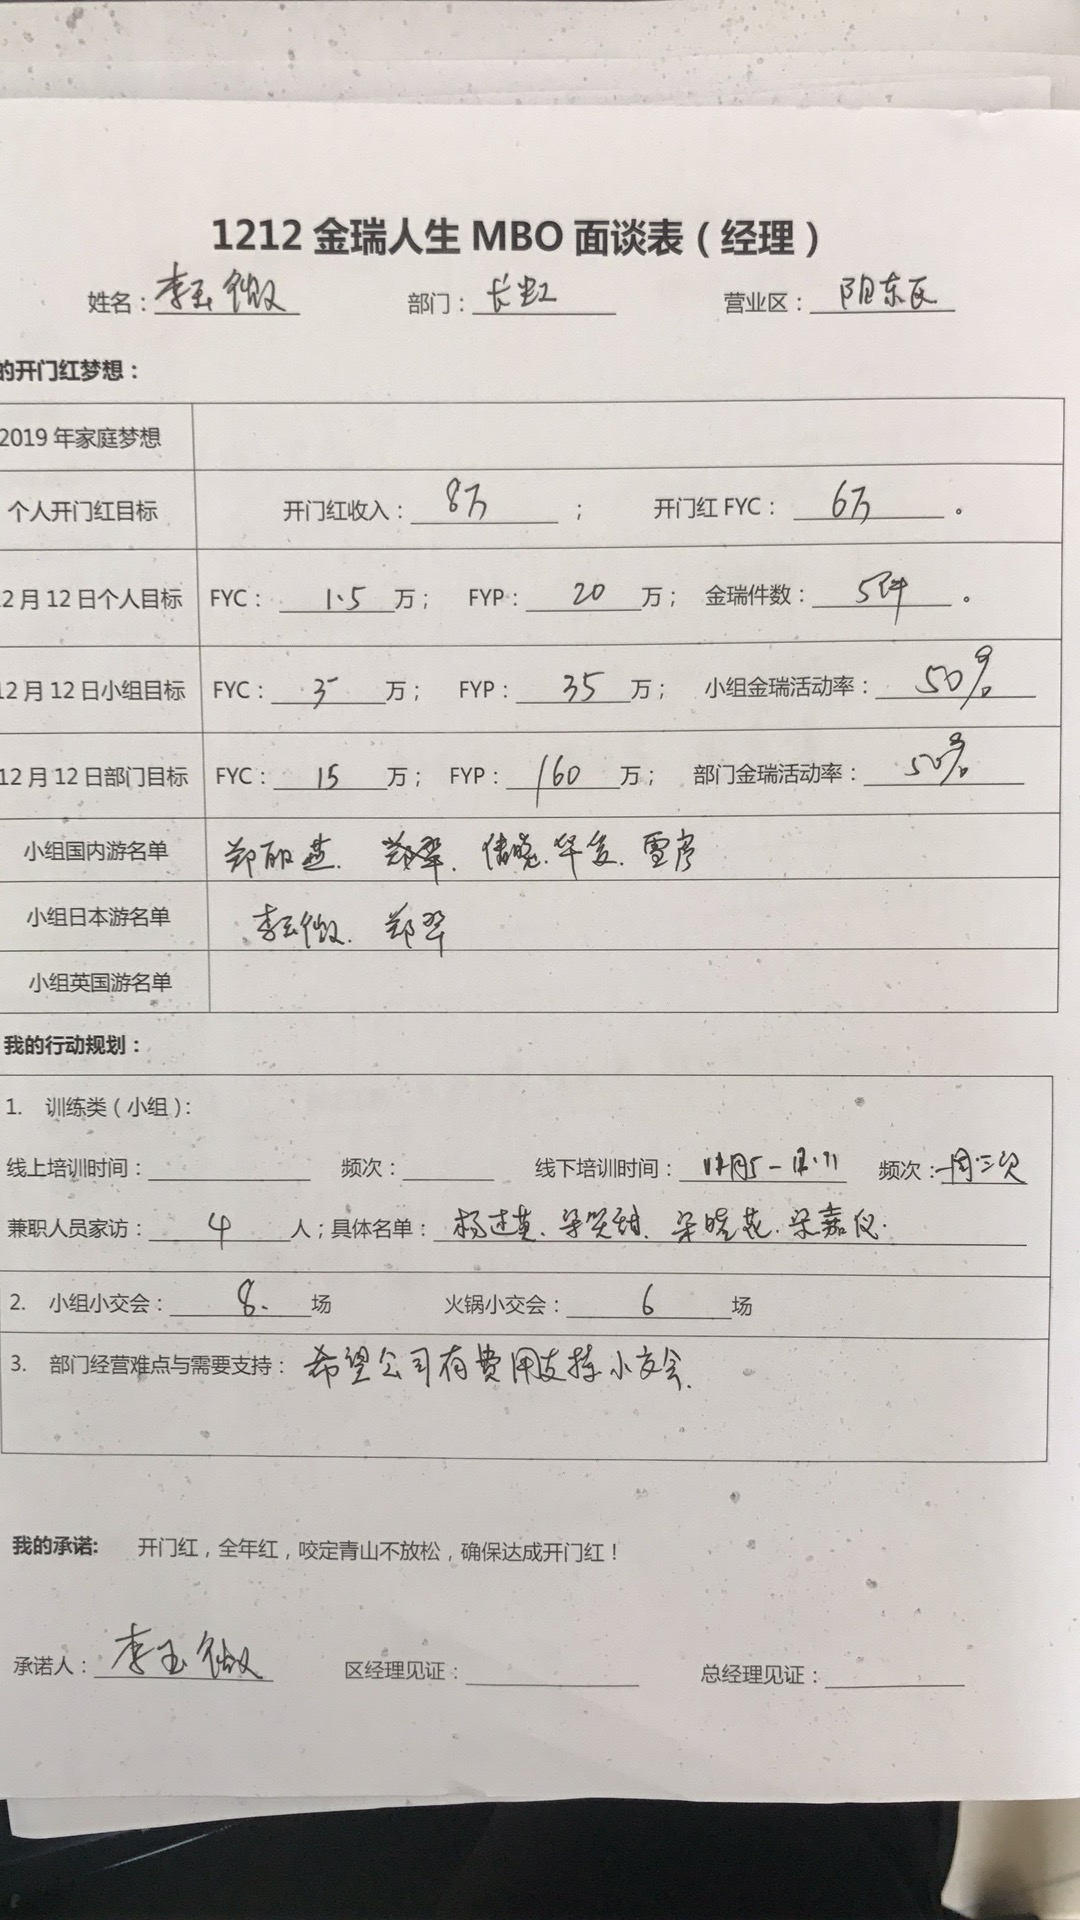 1212 金瑞人生 MBO 面谈表（经理）
姓名：李玉微 部门：长虹 营业区：阳东区
的开门红梦想：
2019 年家庭梦想
个人开门红目标 开门红收入：8万 ； 开门红 FYC：6万 。
2 月 12 日个人目标 FYC：1.5 万； FYP：20 万； 金瑞件数：5件 。
12 月 12 日小组目标 FYC：3 万； FYP：35 万； 小组金瑞活动率：50%
12 月 12 日部门目标 FYC：15 万； FYP：160 万； 部门金瑞活动率：50%
小组国内游名单 郑丽燕. 郑翠.
小组日本游名单 李玉微. 郑翠
小组英国游名单
我的行动规划：
1. 训练类（小组）：
线上培训时间： 频次： 线下培训时间： 频次：一周三次
兼职人员家访：4 人；具体名单：
2. 小组小交会：8. 场 火锅小交会：6 场
3. 部门经营难点与需要支持：希望公司有费用支持小交会.
我的承诺: 开门红，全年红，咬定青山不放松，确保达成开门红！
承诺人：李玉微 区经理见证： 总经理见证：